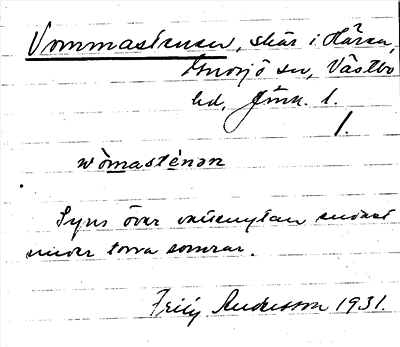 Vommastenen, skär i Hären,
Gnosjö sn, Västbo
hd, Jönk. l.
1.
wòmasténən
Syns över vattenytan endast
under torra somrar.
Frity Andersson 1931.